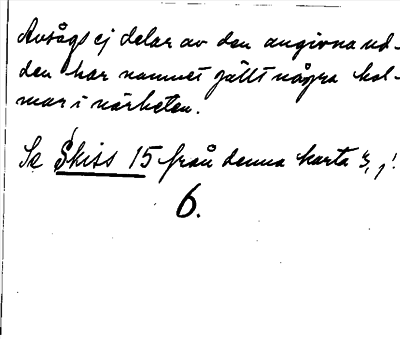 Avsågs ej delar av den angivna ud-
den har namnet gällt några hol-
mar i närheten.
Se Skiss 15 från denna karta
6.